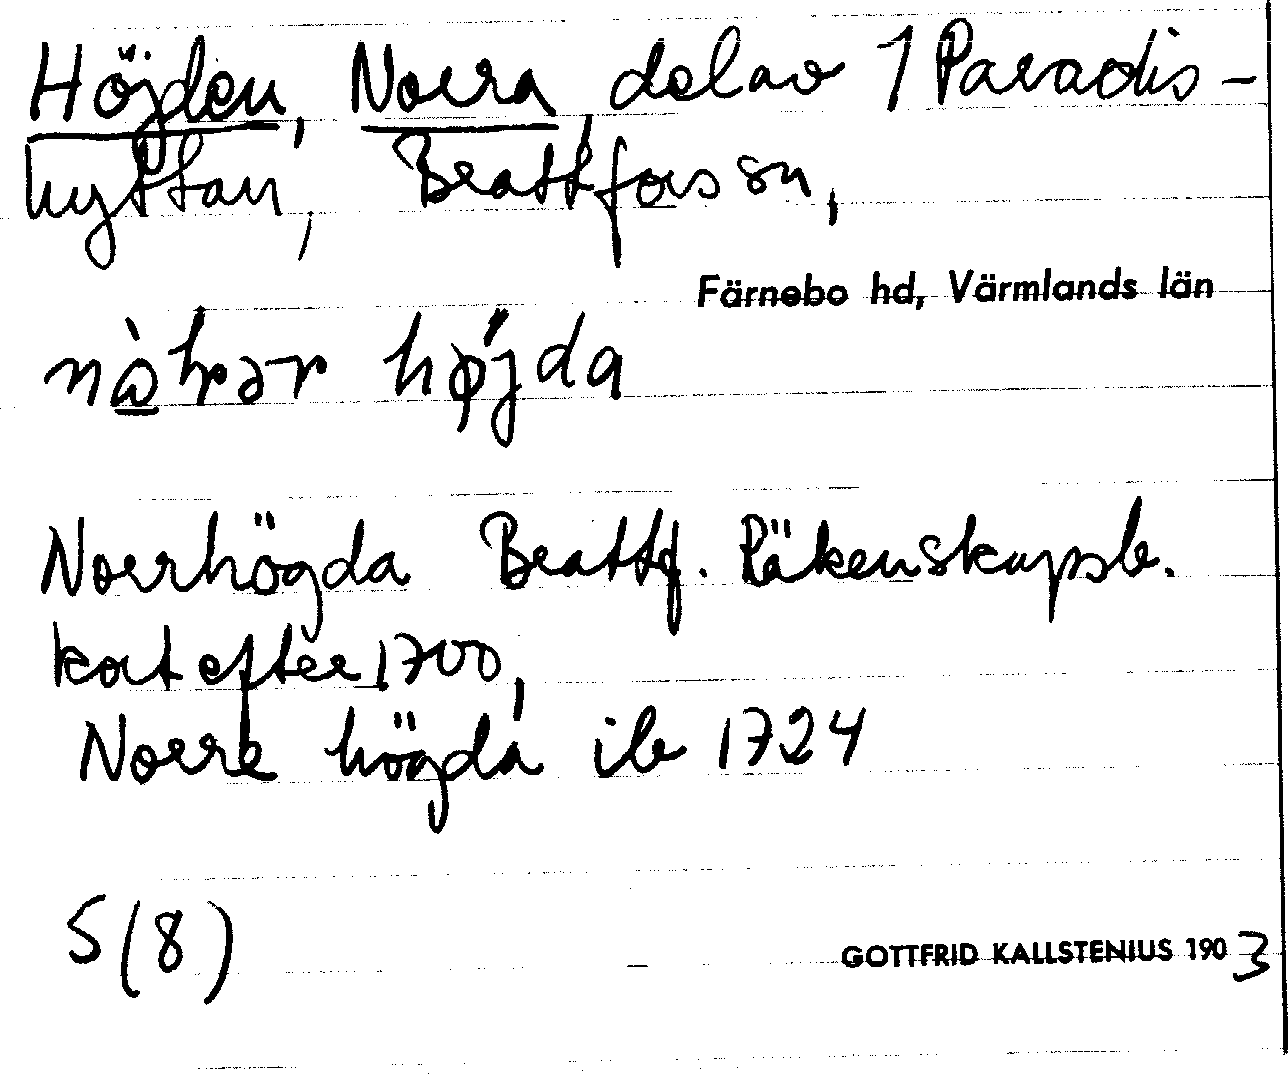 Höjden, Norra, del av 1 Paradis-
hyttan, Brattfors sn,
Färnebo hd, Värmlands län
højda
Norrhögda Brattf. Räkenskapsb.
kort efter 1700,
Norre högda ib 1724
5 (8)
GOTTFRID KALLSTENIUS 1903